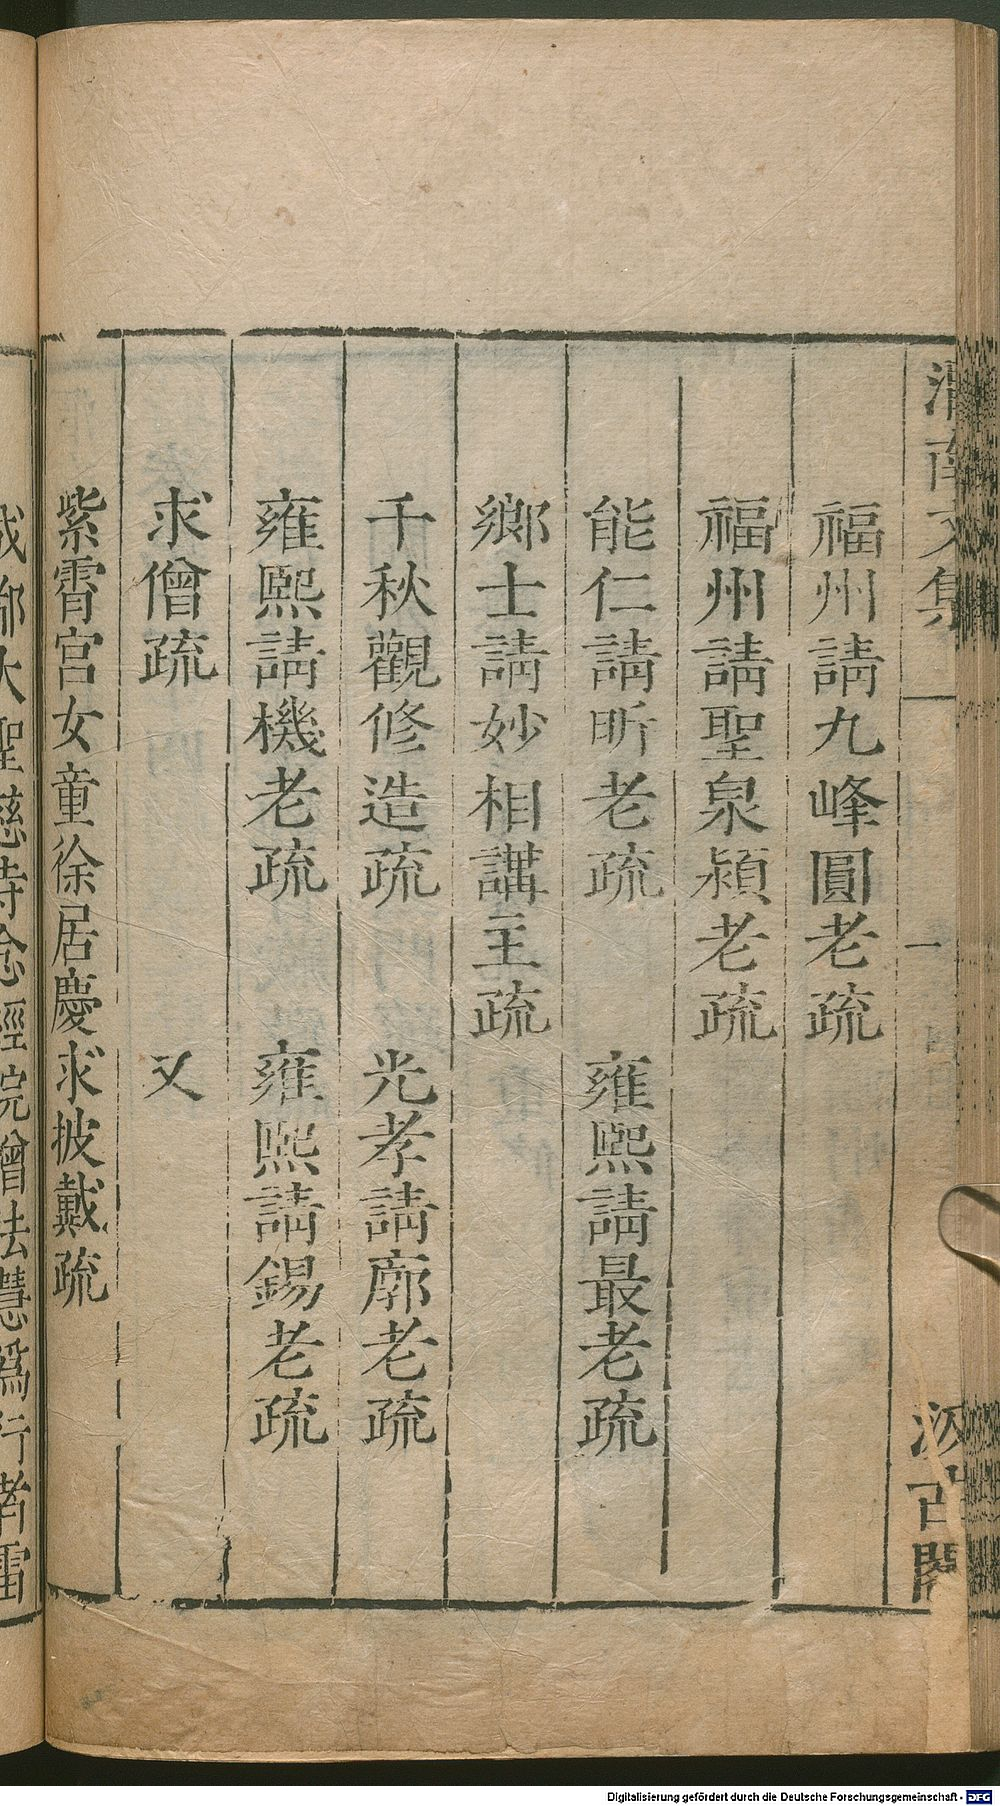 渭南文集
一
汲古閣
福州請九峰圓老疏
福州請聖泉潁老疏
能仁請昕老疏　雍熙請最老疏
鄉士請妙相講主疏
千秋觀修造疏　光孝請廓老疏
雍熙請機老疏　雍熙請錫老疏
求僧疏　又
紫霄宮女童徐居慶求披戴疏
成都大聖慈寺念經院僧法慧爲行者雷
Digitalisierung gefördert durch die Deutsche Forschungsgemeinschaft - DFG